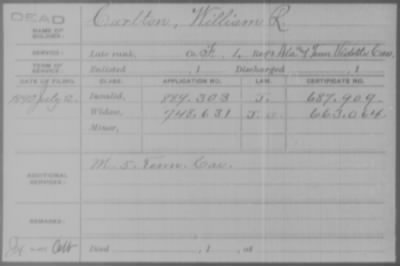 DEAD
NAME OF SOLDIER: Carlton, William R.
SERVICE: Late rank, Co. F, 1, Reg't Ala & Tenn Vidette Cav.
TERM OF SERVICE: Enlisted , 1 Discharged , 1
DATE OF FILING. CLASS. APPLICATION NO. LAW. CERTIFICATE NO.
1890 July 12. Invalid, 889.303 J. 687.909
Widow, 748.631 663.064
Minor,
ADDITIONAL SERVICES: M. 5. Tenn. Cav.
REMARKS:
Died , 1 , at